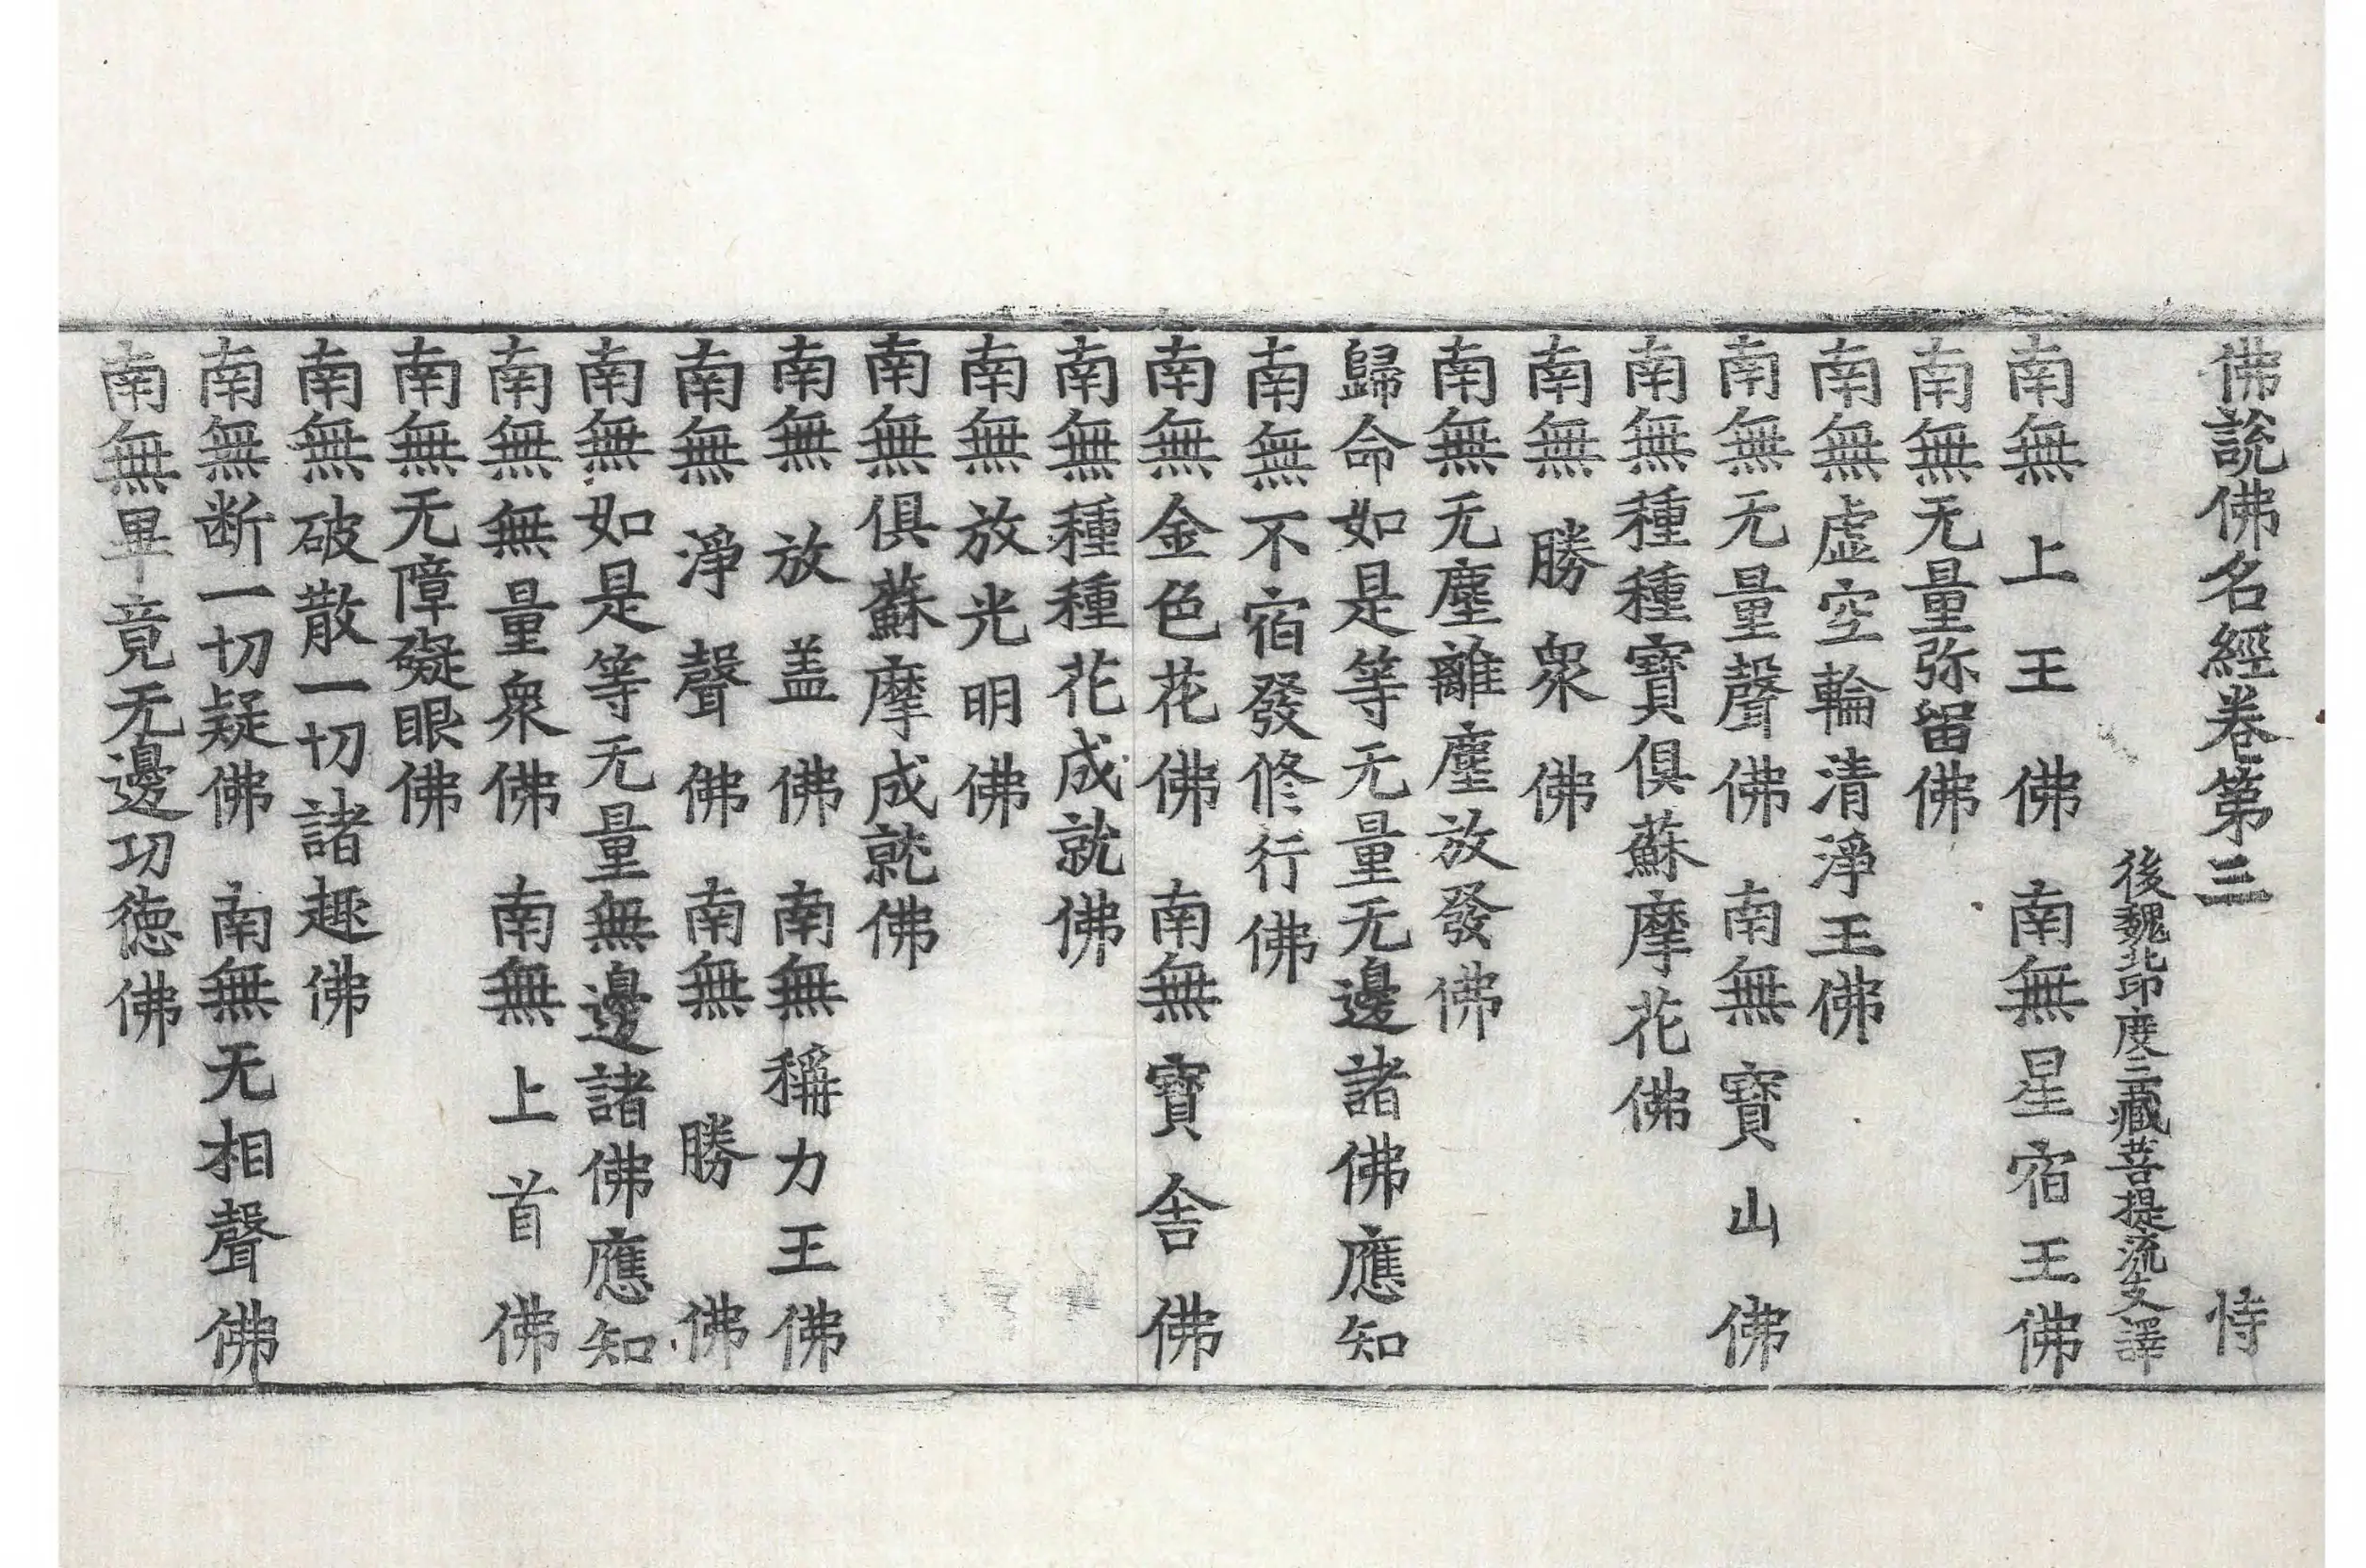 佛說佛名經卷第三 恃
後魏北印度三藏菩提流支譯
南無上王佛 南無星宿王佛
南無无量弥留佛
南無虛空輪清淨王佛
南無无量聲佛 南無寶山佛
南無種種寶俱蘇摩花佛
南無勝衆佛
南無无塵離塵放發佛
歸命如是等无量无邊諸佛應知
南無不宿發修行佛
南無金色花佛 南無寶舍佛
南無種種花成就佛
南無放光明佛
南無俱蘇摩成就佛
南無放盖佛 南無稱力王佛
南無淨聲佛 南無勝佛
南無如是等无量無邊諸佛應知
南無無量衆佛 南無上首佛
南無无障礙眼佛
南無破散一切諸趣佛
南無断一切疑佛 南無无相聲佛
南無畢竟无邊功德佛